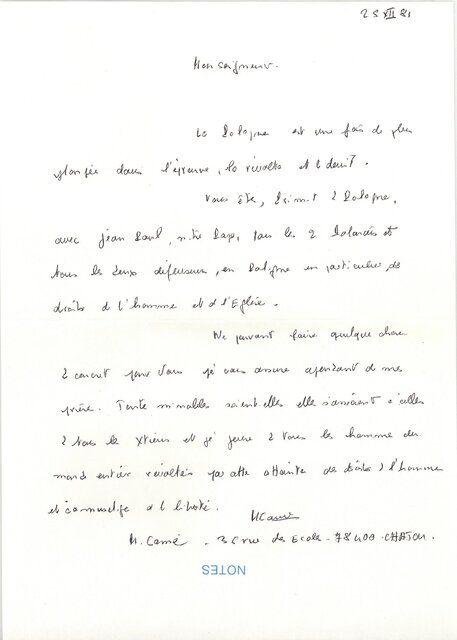 25 XII 81
Monseigneur.
La Pologne est une fois de plus
plongée dans l'épreuve, la révolte et le deuil.
Vous êtes, Primat de Pologne,
avec Jean Paul, notre Pape, tous les 2 Polonais et
tous les deux défenseurs, en Pologne en particulier, des
droits de l'homme et de l'Eglise.
Ne pouvant faire quelque chose
de concret pour vous je vous assure cependant de mes
prières. Toute minables soient-elles elles s'associent à celles
de tous les chrétiens et je pense à tous les hommes du
monde entier révoltés par cette atteinte des droits de l'homme
et de la liberté.
M. Camé
M. Camé - 36 rue des Ecoles - 78400 - CHATOU.
NOTES